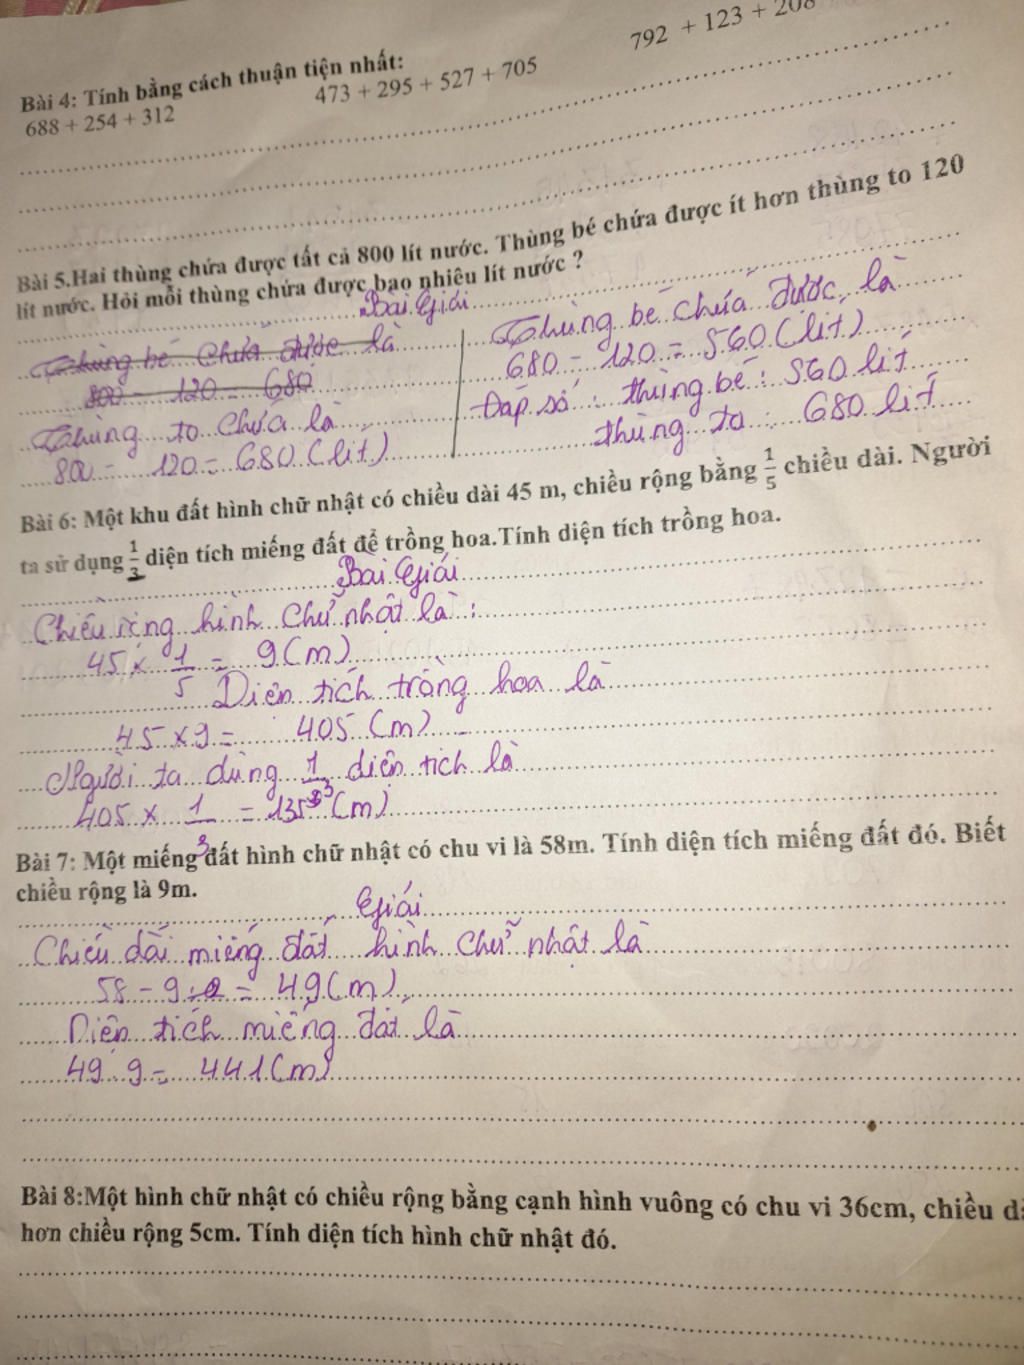 Bài 4: Tính bằng cách thuận tiện nhất:
688 + 254 + 312
473 + 295 + 527 + 705
792 + 123 + 208
Bài 5.Hai thùng chứa được tất cả 800 lít nước. Thùng bé chứa được ít hơn thùng to 120
lít nước. Hỏi mỗi thùng chứa được bao nhiêu lít nước ?
Bài Giải
Thùng bé chứa được là
800 - 120 = 680
Thùng to chứa là
800 - 120 = 680 (lít)
Thùng bé chứa được là
680 - 120 = 560 (lít)
Đáp số : thùng bé : 560 lít
thùng to : 680 lít
Bài 6: Một khu đất hình chữ nhật có chiều dài 45 m, chiều rộng bằng 1/5 chiều dài. Người
ta sử dụng 1/3 diện tích miếng đất để trồng hoa.Tính diện tích trồng hoa.
Bài Giải
Chiều rộng hình chữ nhật là :
45 × 1/5 = 9 (m)
Diện tích trồng hoa là
45 × 9 = 405 (m)
Người ta dùng 1/3 diện tích là
405 × 1/3 = 135 (m)
Bài 7: Một miếng đất hình chữ nhật có chu vi là 58m. Tính diện tích miếng đất đó. Biết
chiều rộng là 9m.
Giải
Chiều dài miếng đất hình chữ nhật là
58 - 9 = 49 (m)
Diện tích miếng đất là
49 . 9 = 441 (m)
Bài 8:Một hình chữ nhật có chiều rộng bằng cạnh hình vuông có chu vi 36cm, chiều
hơn chiều rộng 5cm. Tính diện tích hình chữ nhật đó.